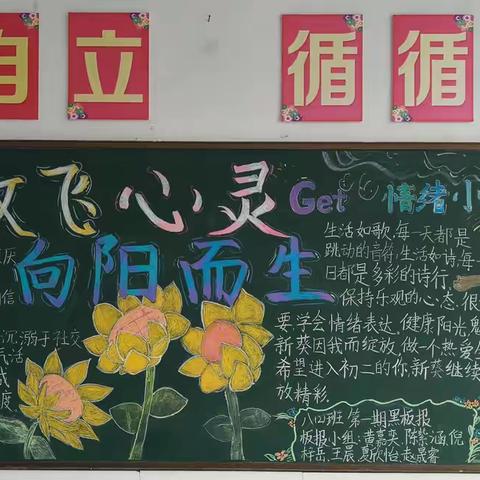 自立 循循
放飞心灵
Get 情绪小
向阳而生
生活如歌,每一天都是
跳动的音符;生活如诗,每
日都是多彩的诗行。
保持乐观的心态,很
要学会情绪表达,健康阳光
新葵因我而绽放,做一个热爱
希望进入初二的你,新葵继续
放精彩。
沉溺于社交
活
度
八(2)班 第一期黑板报
板报小组:黄嘉奕、陈紫涵、倪
梓岳、王晨、夏欣怡、赵晟睿